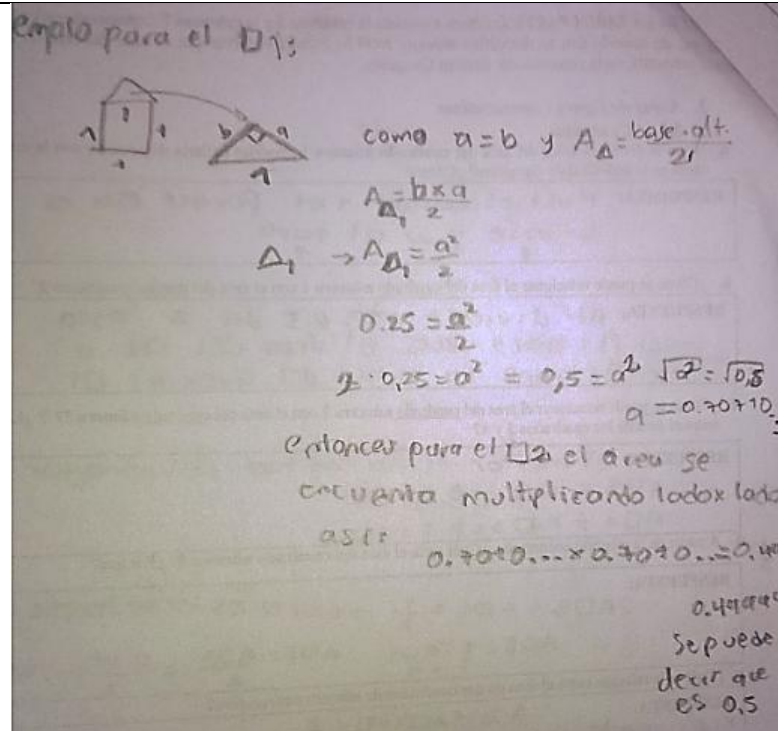 emplo para el □1:
1
1
1
1
b a
1
como a = b y A△ = base · alt. / 2
A△1 = b × a / 2
△1 → A△1 = a² / 2
0.25 = a² / 2
2 · 0,25 = a² = 0,5 = a² √a² = √0,5
a = 0.70710
entonces para el □2 el área se
encuentra multiplicando lado x lado
así:
0.7070... × 0.7070.. = 0,4
0.49999
Se puede
decir que
es 0,5